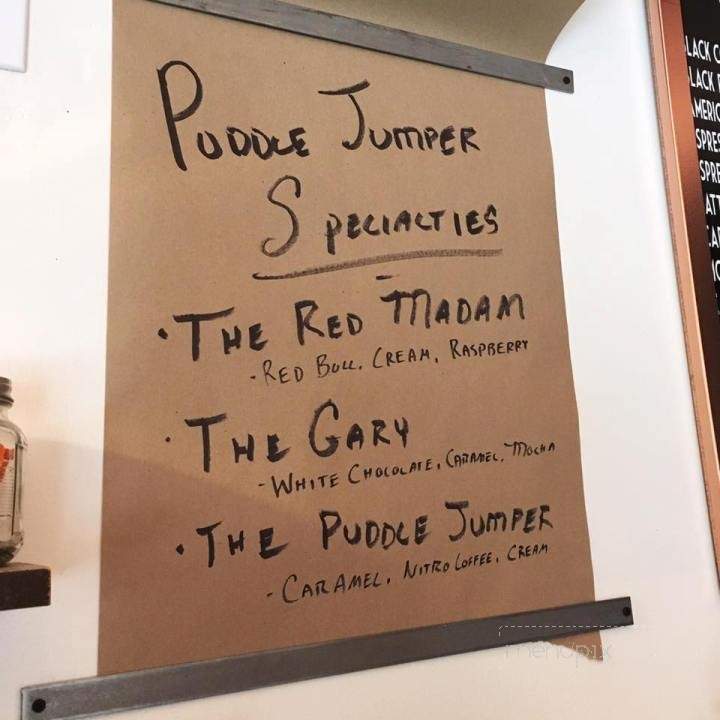 PUDDLE JUMPER
SPECIALTIES
· THE RED MADAM
- RED BULL, CREAM, RASPBERRY
· THE GARY
- WHITE CHOCOLATE, CARAMEL, MOCHA
· THE PUDDLE JUMPER
- CARAMEL, NITRO COFFEE, CREAM
menupix